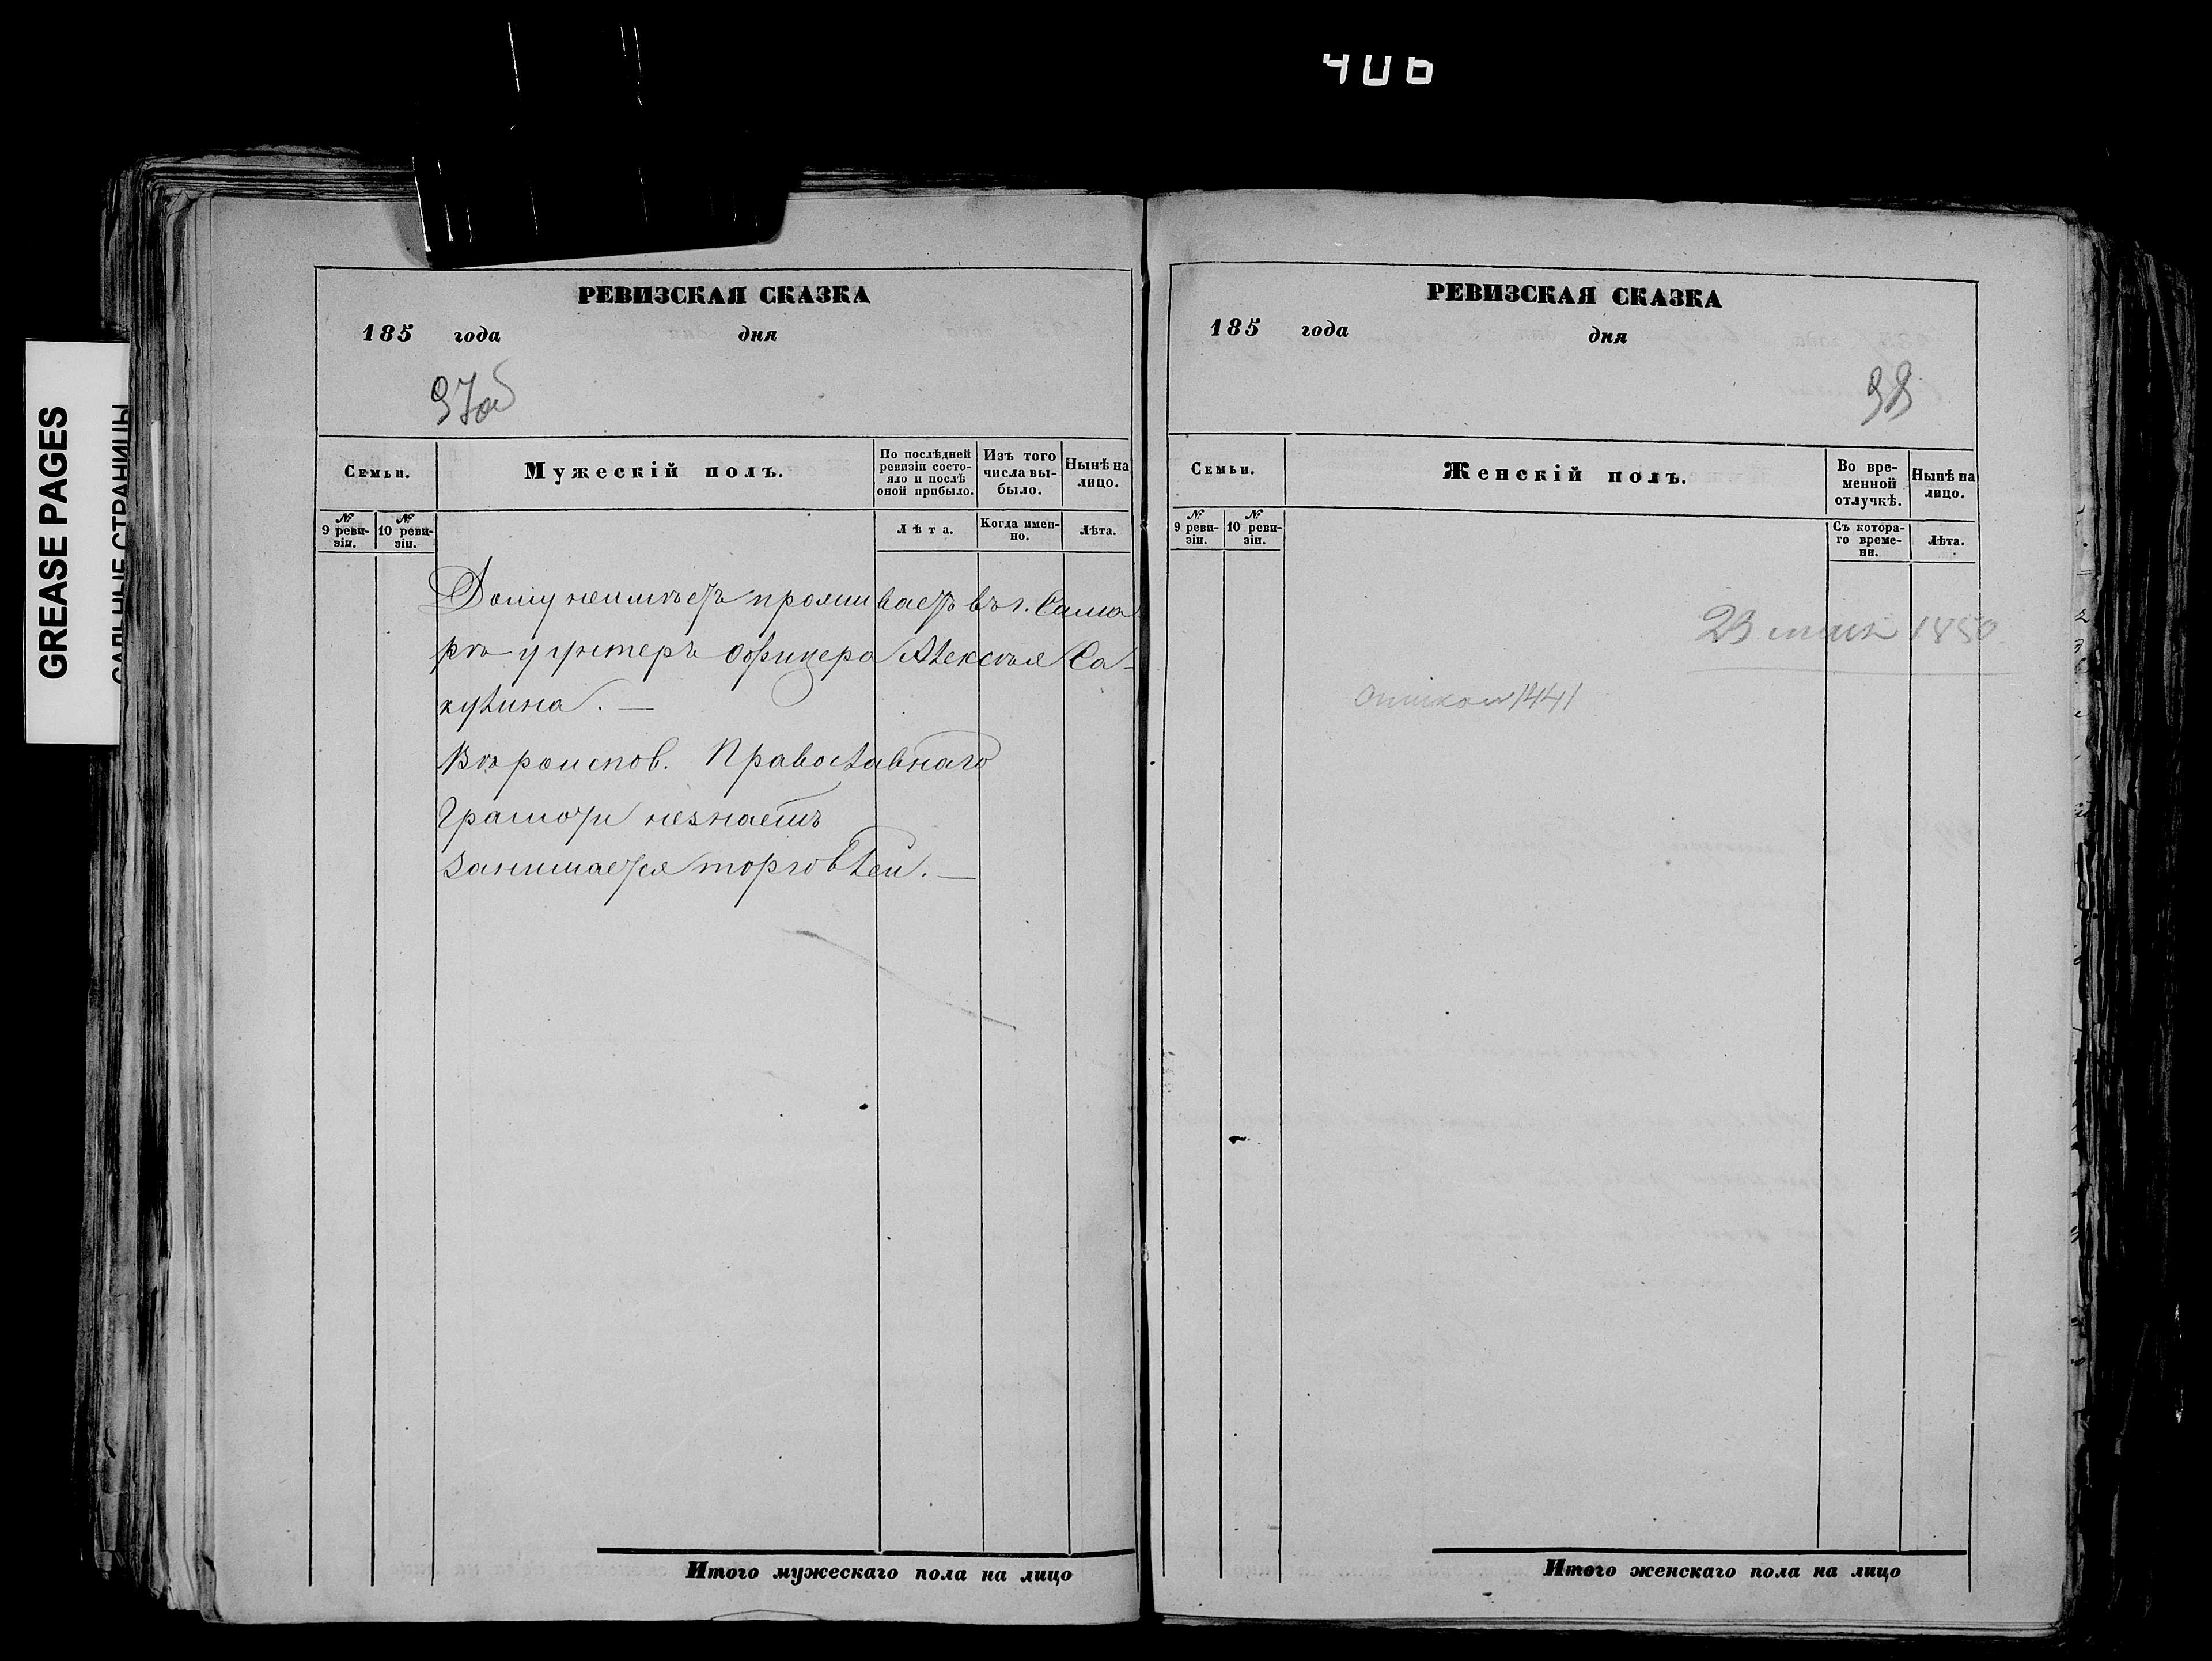 406
GREASE PAGES
САЛЬНЫЕ СТРАНИЦЫ
РЕВИЗСКАЯ СКАЗКА
185 года дня
97об
Семьи.
Мужескій полъ.
По послѣдней ревизіи состояло и послѣ оной прибыло.
Изъ того числа выбыло.
Нынѣ на лицо.
№ 9 ревизіи.
№ 10 ревизіи.
Лѣта.
Когда именно.
Лѣта.
Дому неимѣетъ проживаетъ въ г. Сама
рѣ у унтеръ офицера Алексѣя Са-
кулина. —
Вѣроиспов. Православнаго
Грамоты незнаетъ
Занимается торговлей. —
Итого мужескаго пола на лицо
РЕВИЗСКАЯ СКАЗКА
185 года дня
98
Семьи.
Женскій полъ.
Во временной отлучкѣ.
Нынѣ на лицо.
№ 9 ревизіи.
№ 10 ревизіи.
Съ котораго времени.
Лѣта.
23 1850
1441
Итого женскаго пола на лицо